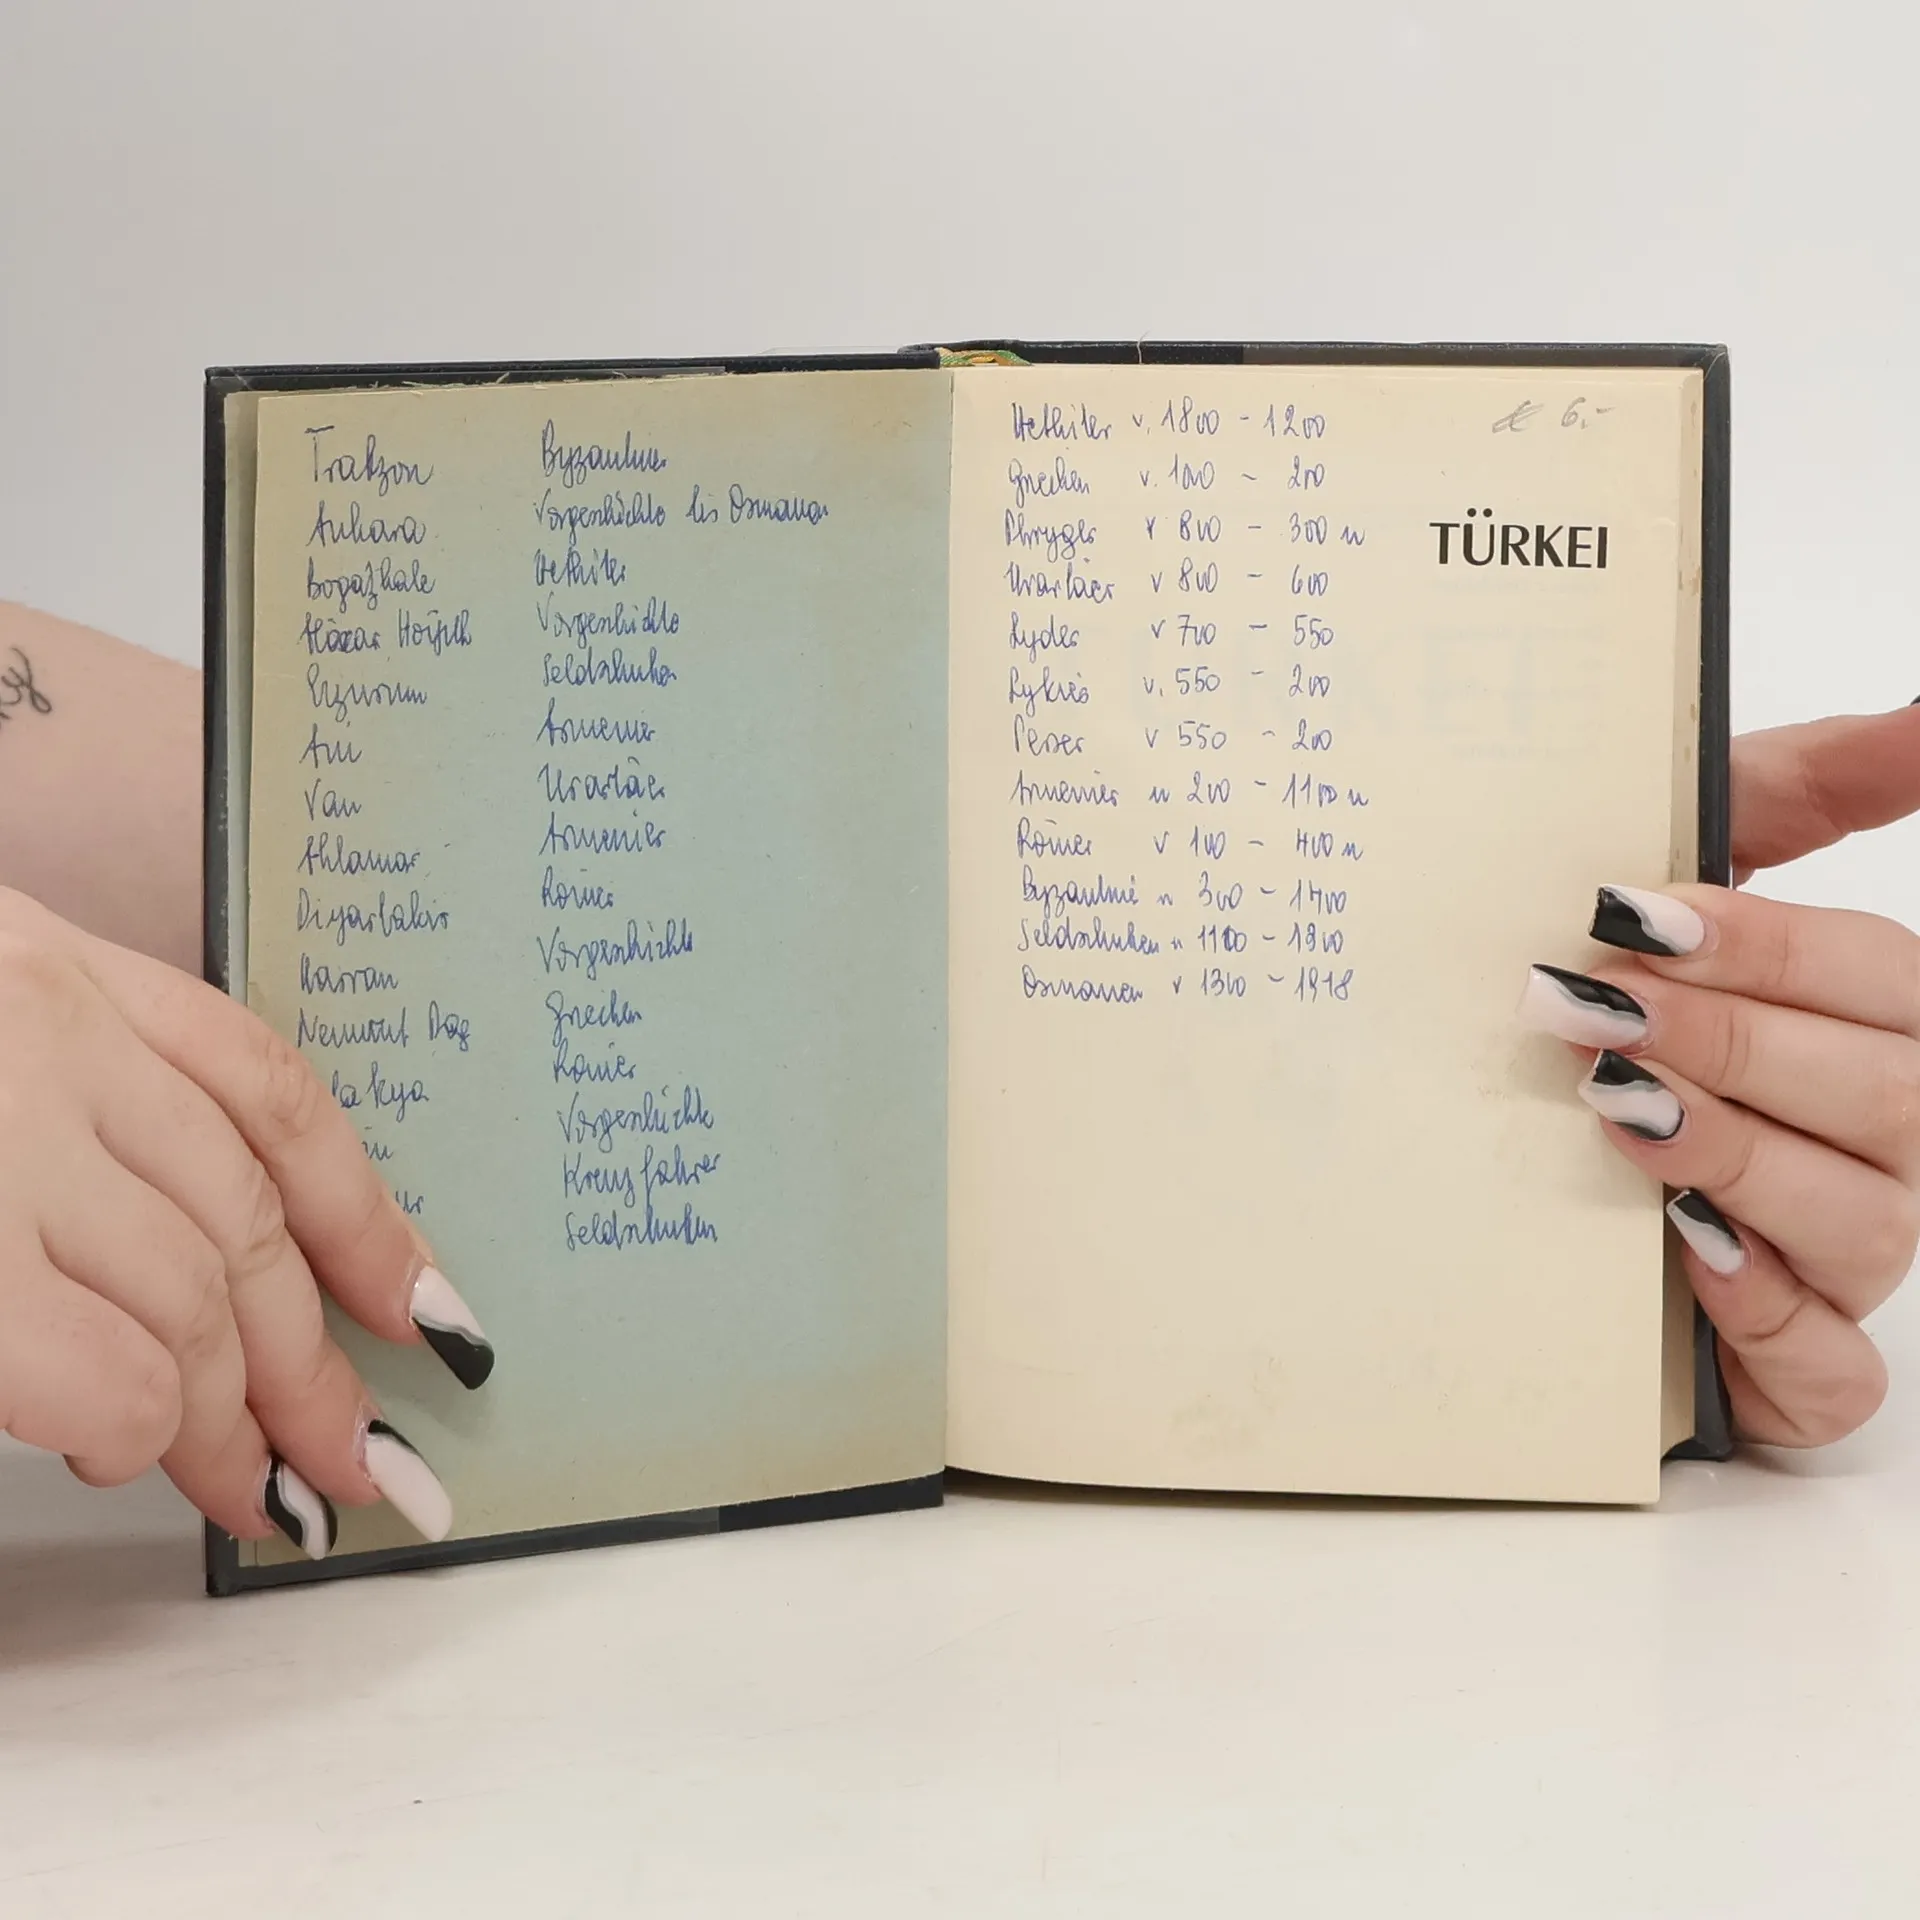 Trabzon Byzantiner
Ankara Vorgeschichte bis Osmanen
Bogazkale Hethiter
Höyük Vorgeschichte
Erzurum Seldschuken
Ani Armenier
Van Urartäer
Ahlamar Armenier
Diyarbakir Römer
Harran Vorgeschichte
Nemrut Dag Griechen
akya Römer
Vorgeschichte
Kreuzfahrer
Seldschuken
Hethiter v. 1800 - 1200
Griechen v. - 200
Phryger v 800 - 300 n
Urartäer v 800 - 600
Lyder v 700 - 550
Lykier v. 550 - 200
Perser v 550 - 200
Armenier n 200 - 1100 n
Römer v 100 - 400 n
Byzantiner n 300 - 1400
Seldschuken n 1100 - 1300
Osmanen v 1300 - 1918
€ 6.-
TÜRKEI